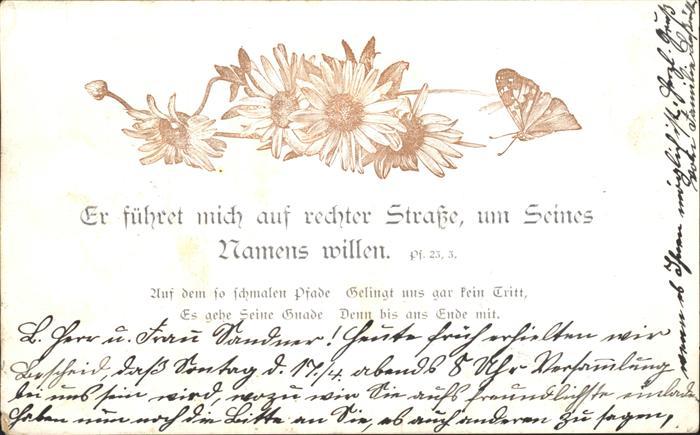 Er führet mich auf rechter Straße, um Seines
Namens willen. Ps. 23, 3.
Auf dem so schmalen Pfade Gelingt uns gar kein Tritt,
Es gehe Seine Gnade Denn bis ans Ende mit.
L. Herr u. Frau Sandner! Heute früh erhielten wir
Bescheid, daß Sontag d. 17./4. abends 8 Uhr Versamlung
bei uns sein wird, wozu wir Sie aufs freundlichste einladen
haben nun noch die Bitte an Sie, es auch anderen zu sagen,
wenn es Ihnen möglich ist. Herzl. Gruß